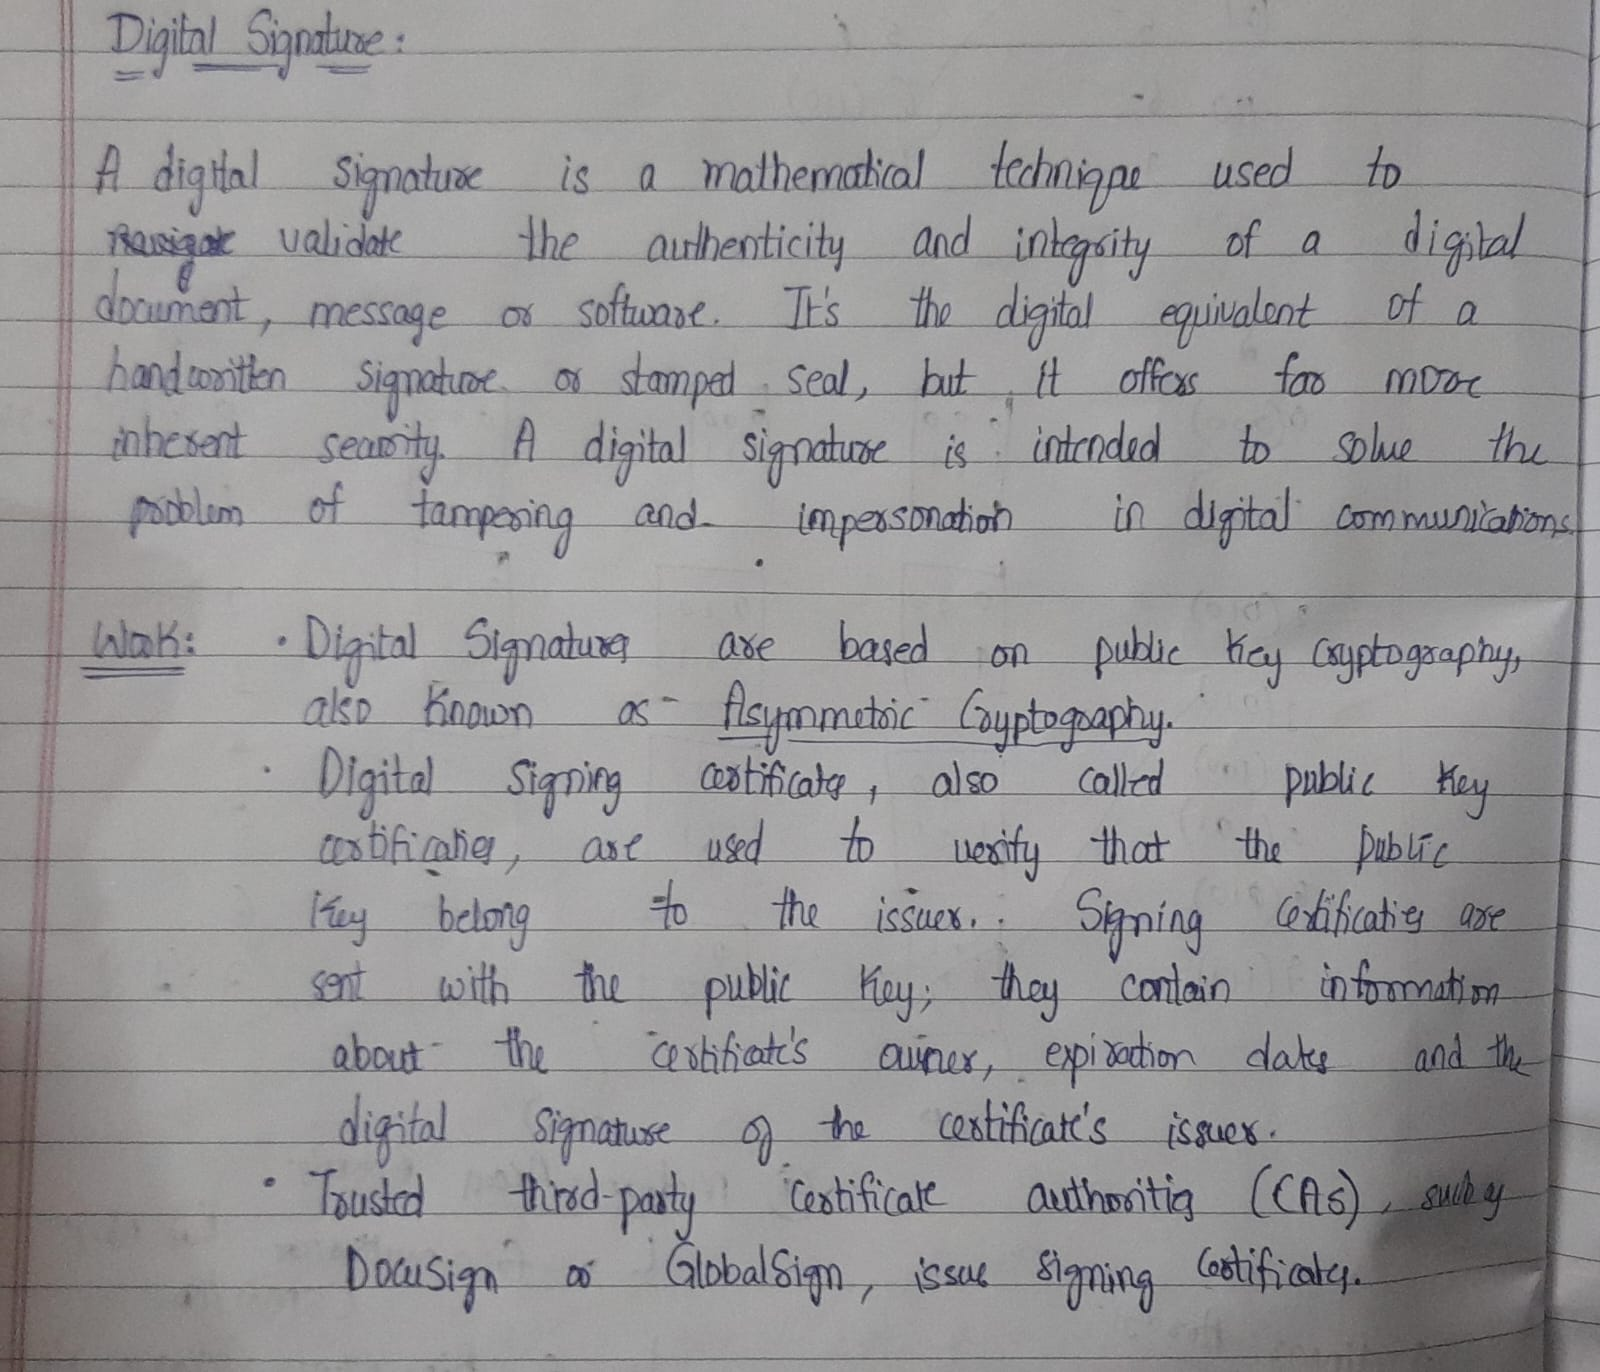 Digital Signature:
A digital signature is a mathematical technique used to
validate the authenticity and integrity of a digital
document, message or software. It's the digital equivalent of a
handwritten signature or stamped seal, but it offers far more
inherent security. A digital signature is intended to solve the
problem of tampering and impersonation in digital communications.
Work: • Digital Signatures are based on public key cryptography,
also known as Asymmetric Cryptography.
• Digital signing certificates, also called public key
certificates, are used to verify that the public
key belong to the issuer. Signing certificates are
sent with the public key; they contain information
about the certificate's owner, expiration dates and the
digital signature of the certificate's issuer.
• Trusted third-party certificate authorities (CAs), such as
DocuSign or GlobalSign, issue signing certificates.